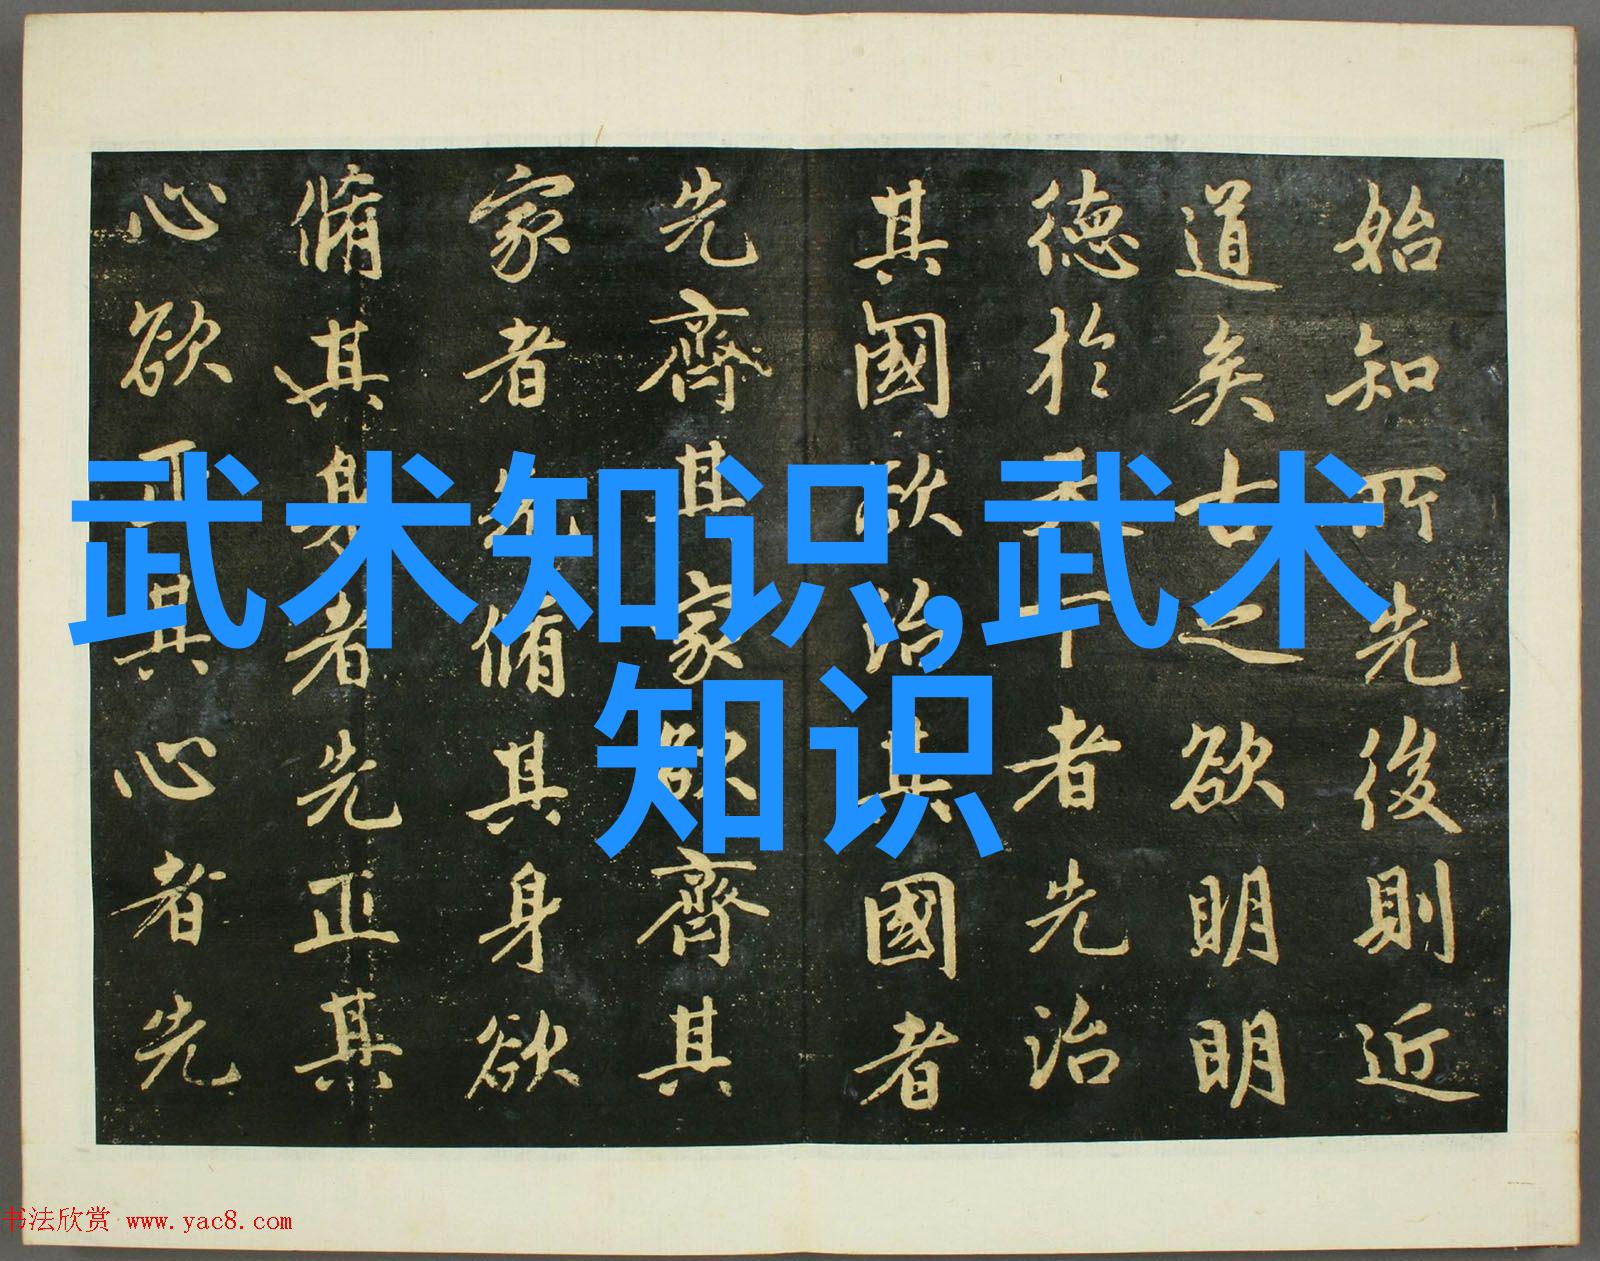 武术知识,武术
知识
始知所先後則近
道矣古之欲明明
德於天下者先治
其國欲治其國者
先齊其家欲齊其
家者先脩其身欲
脩其身者先正其
心欲正其心者先
书法欣赏 www.yac8.com